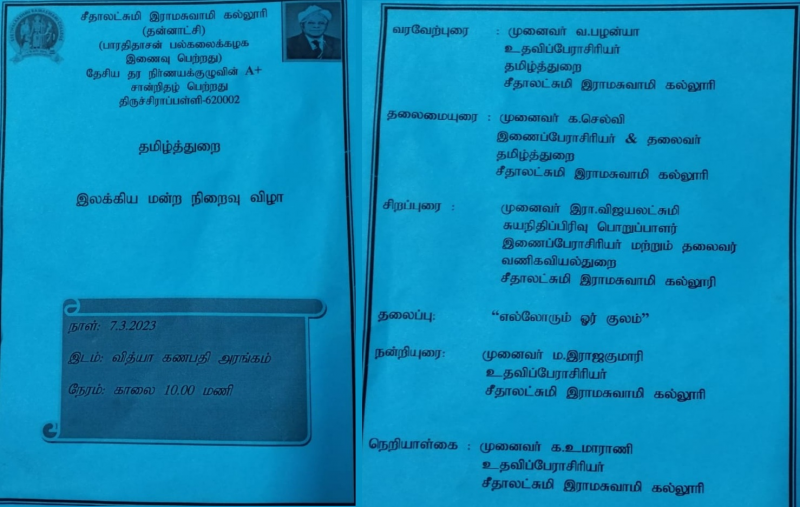 சீதாலட்சுமி இராமசுவாமி கல்லூரி
(தன்னாட்சி)
(பாரதிதாசன் பல்கலைக்கழக
இணைவு பெற்றது)
தேசிய தர நிர்ணயக்குழுவின் A+
சான்றிதழ் பெற்றது
திருச்சிராப்பள்ளி-620002
தமிழ்த்துறை
இலக்கிய மன்ற நிறைவு விழா
நாள்: 7.3.2023
இடம்: வித்யா கணபதி அரங்கம்
நேரம்: காலை 10.00 மணி
வரவேற்புரை : முனைவர் வ.பழன்யா
உதவிப்பேராசிரியர்
தமிழ்த்துறை
சீதாலட்சுமி இராமசுவாமி கல்லூரி
தலைமையுரை : முனைவர் க.செல்வி
இணைப்பேராசிரியர் & தலைவர்
தமிழ்த்துறை
சீதாலட்சுமி இராமசுவாமி கல்லூரி
சிறப்புரை : முனைவர் இரா.விஜயலட்சுமி
சுயநிதிப்பிரிவு பொறுப்பாளர்
இணைப்பேராசிரியர் மற்றும் தலைவர்
வணிகவியல்துறை
சீதாலட்சுமி இராமசுவாமி கல்லூரி
தலைப்பு: “எல்லோரும் ஓர் குலம்”
நன்றியுரை: முனைவர் ம.இராஜகுமாரி
உதவிப்பேராசிரியர்
சீதாலட்சுமி இராமசுவாமி கல்லூரி
நெறியாள்கை : முனைவர் க.உமாராணி
உதவிப்பேராசிரியர்
சீதாலட்சுமி இராமசுவாமி கல்லூரி